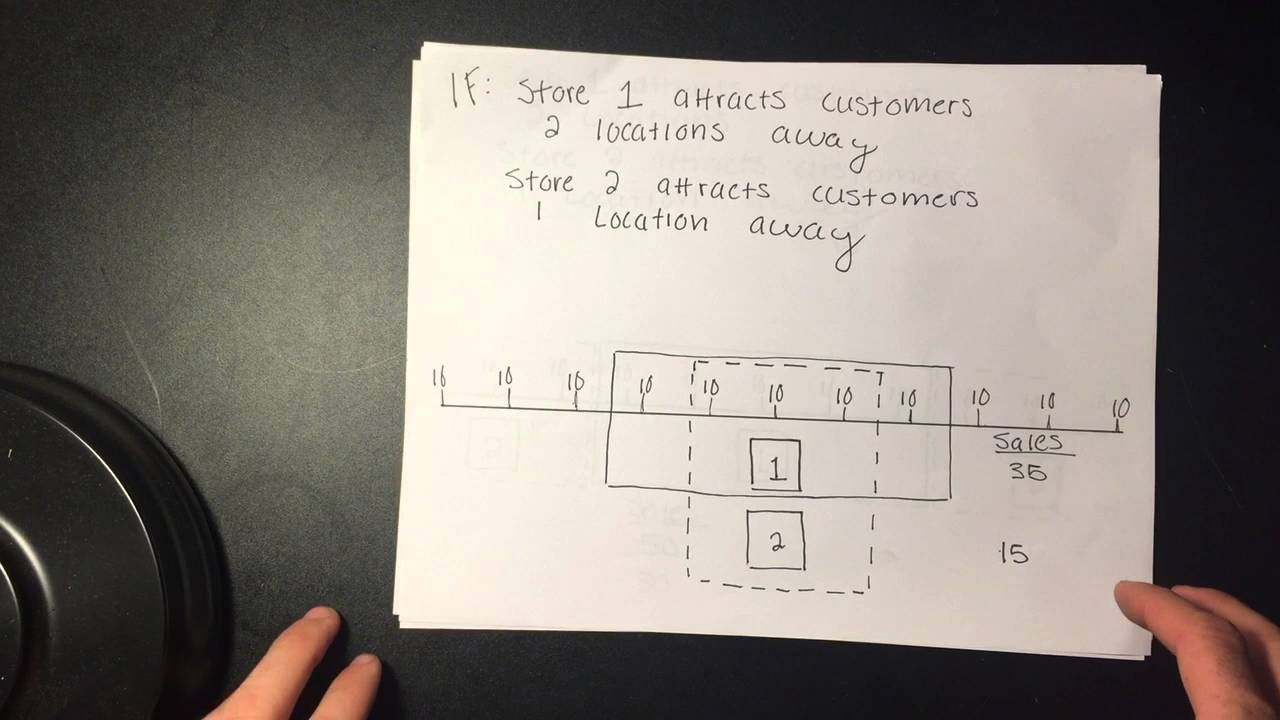 IF: Store 1 attracts customers
2 locations away
Store 2 attracts customers
1 Location away
10 10 10 10 10 10 10 10 10 10 10
Sales
1 35
2 15